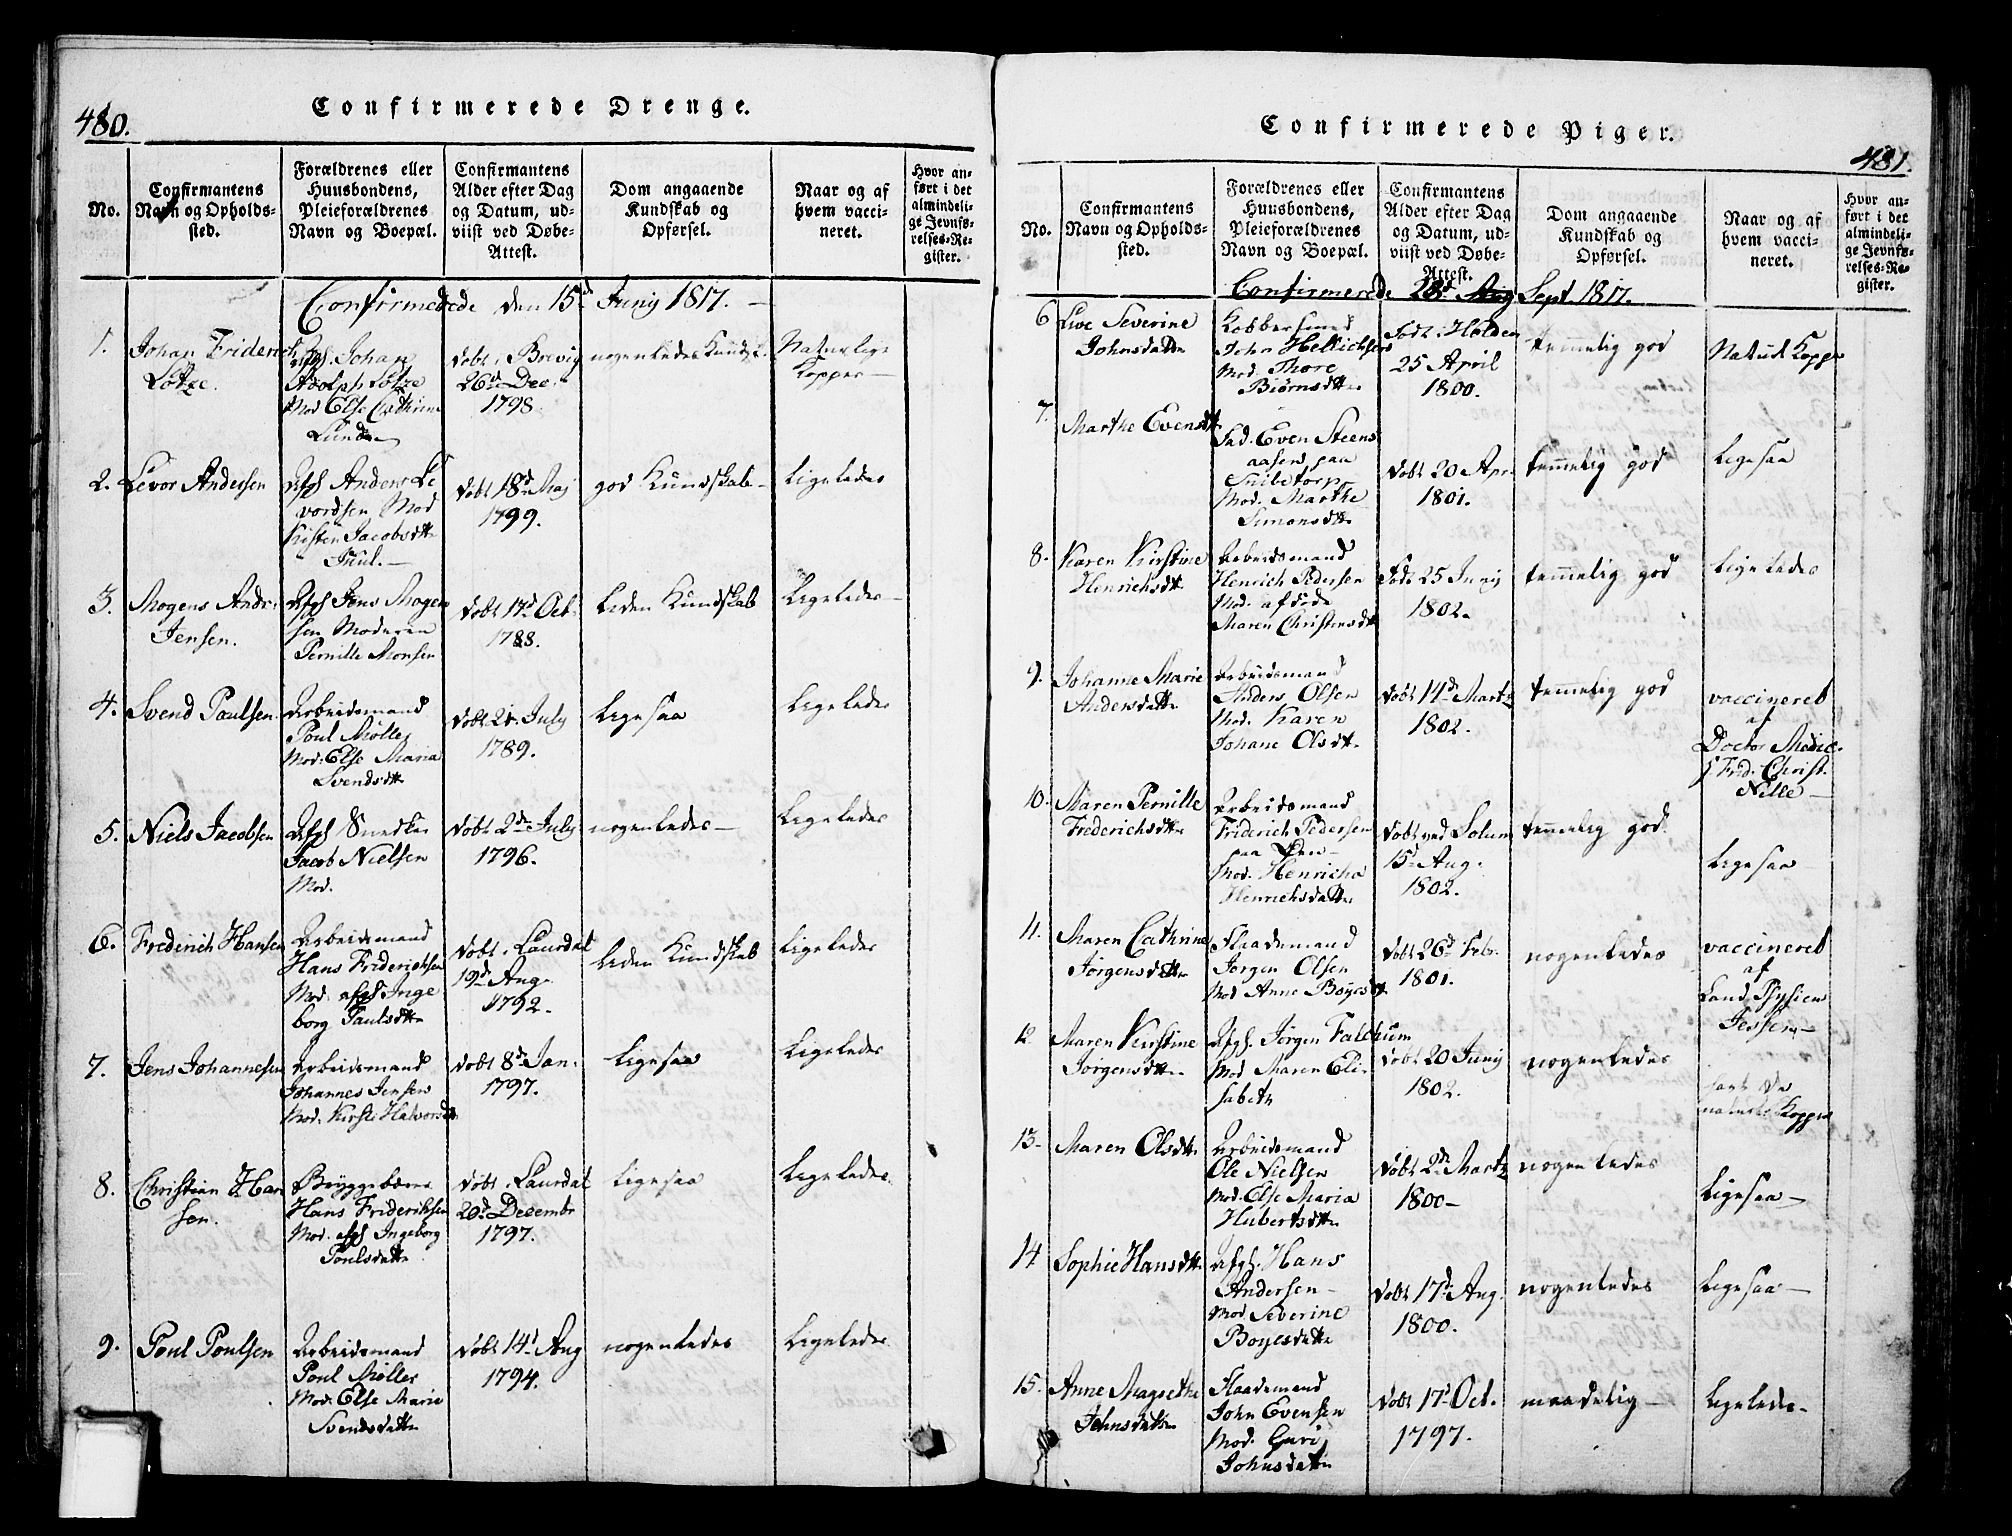 480.
Confirmerede Drenge.
No.
Confirmantens
Navn og Opholds-
sted.
Forældrenes eller
Huusbondens,
Pleieforældrenes
Navn og Boepæl.
Confirmantens
Alder efter Dag
og Datum, ud-
viist ved Døbe-
Attest.
Dom angaaende
Kundskab og
Opførsel.
Naar og af
hvem vacci-
neret.
Hvor an-
ført i det
almindeli-
ge Jevnfø-
relses-Re-
gister.
Confirmerede den 15d Junij 1817.
1.
Johan Friderich
Lötze.
Afg. Johan
Adolph Lötze
Mod Else Cathrine
Lund
døbt i Brevig
26d Dec.
1798.
nogenledes Kundsk.
Naturlige
Kopper
2.
Levor Andersen
Afg Anders Le
vordsen Mod
Kisten Jacobsdtr
Juul.
døbt 18d Maj
1799.
god Kundskab
ligeledes
3.
Mogens Andr.
Jensen.
Afg Jens Mogen
sen Moderen
Pernille Monsen
døbt 17d Oct.
1788.
liden Kundskab
ligeledes
4.
Svend Paulsen
Arbeidsmand
Poul Møller
Mod. Else Maria
Svendsdtr
døbt 21. July
1789.
ligesaa
ligeledes
5.
Niels Jacobsen
Afg Snedker
Jacob Nielsen
Mod.
døbt 2d July
1796.
nogenledes
ligeledes
6.
Frederich Hansen
Arbeidsmand
Hans Frideriksen
Mod. afg Inge
borg Paulsdtr
døbt i Laurdal
19d Aug.
1792.
liden Kundskab
ligeledes
7.
Jens Johannesen
Arbeidsmand
Johannes Jensen
Mod. Kirsti Halvorsdtr
døbt 8d Jan.
1797.
ligesaa
ligeledes
8.
Christian Han
sen.
Bryggebærer
Hans Frideriksen
Mod. afg Ingeborg
Poulsdatter
døbt i Laurdal
20d Desembr
1797.
ligesaa
ligeledes
9.
Poul Poulsen
Arbeidsmand
Poul Møller
Mod. Else Marie
Svendsdatter
døbt 14d Aug
1794.
nogenledes
ligeledes
Confirmerede Piger.
481.
No.
Confirmantens
Navn og Opholds-
sted.
Forældrenes eller
Huusbondens,
Pleieforældrenes
Navn og Boepæl.
Confirmantens
Alder efter Dag
og Datum, ud-
viist ved Døbe-
Attest.
Dom angaaende
Kundskab og
Opførsel.
Naar og af
hvem vacci-
neret.
Hvor an-
ført i det
almindeli-
ge Jevnfø-
relses-Re-
gister.
Confirmerede 28d Sept. 1817.
6
Live Severine
Johnsdatter
Kobbersmed
John Hellichsen
Mod. Thore
Biørnsdtr
født i Holden
25 April
1800.
temmelig god
Naturl Kopper
7.
Marthe Evensdtr
Sad. Even Steens
aasen paa
Sniibetorp
Mod. Marthe
Simonsdtr
døbt 20 Apr.
1801.
temmelig god
ligesaa
8.
Karen Kirstine
Henrichsdtr
Arbeidsmand
Henrich Pedersen
Mod. afdøde
Maren Christensdtr
født 25 Junij
1802.
temmelig god
ligeledes
9.
Johanne Marie
Andersdatter
Arbeidsmand
Anders Olsen
Mod. Karen
Johane Olsdtr
døbt 14d Martz
1802.
temmelig god
vaccineret
af
Doctor Medic.
Frid. Christ.
Nille
10.
Maren Pernille
Frederichsdtr
Arbeidsmand
Friderich Pedersen
paa Øen
Mod. Henricha
Henrichsdatter
døbt ved Solum
15d Aug.
1802.
temmelig god.
ligesaa
11.
Maren Cathrine
Jørgensdatter
Flaademand
Jørgen Olsen
Mod Anne Boyesdtr
døbt 26d Febr.
1801.
nogenledes
vaccineret
af
Land Physicus
Jessen
12
Maren Kirstine
Jørgensdtr
Afg. Jørgen Falchum
Mod Maren Eli-
sabeth
døbt 20 Junij
1802.
nogenledes
havt de
naturl. Kopper
13.
Maren Olsdtr
Arbeidsmand
Ole Nielsen
Mod. Else Maria
Hubertsdtr
døbt 2d Martz
1800
nogenledes
ligesaa
14
Sophie Hansdtr
Afg. Hans
Andersen
Mod Severine
Boyesdatter
døbt 17d Aug.
1800.
nogenledes
ligesaa
15.
Anne Magrethe
Johnsdatter
Flaademand
John Evensen
Mod. Guri
Johnsdatter
døbt 17d Oct.
1797.
maadelig
ligeledes